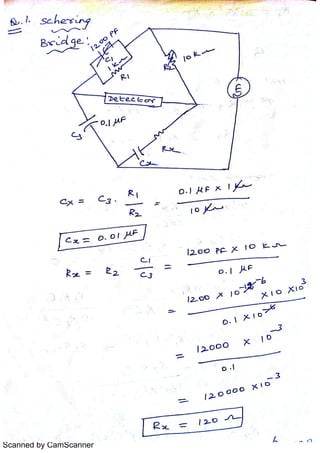 Q.1. Schering
Bridge:
1200 PF
C1
1 k Ω
R1
R2
10 k Ω
E
S
Detector
C3
0.1 μF
Rx
Cx
Cx = C3 . R1 / R2 = 0.1 μF x 1 kΩ / 10 kΩ
Cx = 0.01 μF
Rx = R2 C1 / C3 = 1200 PF x 10 k Ω / 0.1 μF
= 1200 x 10^-12 -6 x 10 x 10^3 / 0.1 x 10^-6
= 12000 x 10^-3 / 0.1
= 120000 x 10^-3
Rx = 120 Ω
Scanned by CamScanner